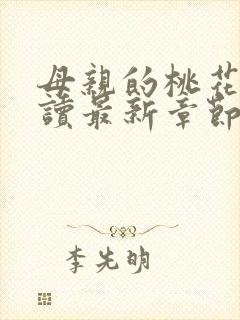 母親的桃花
讀最新章節
李先明